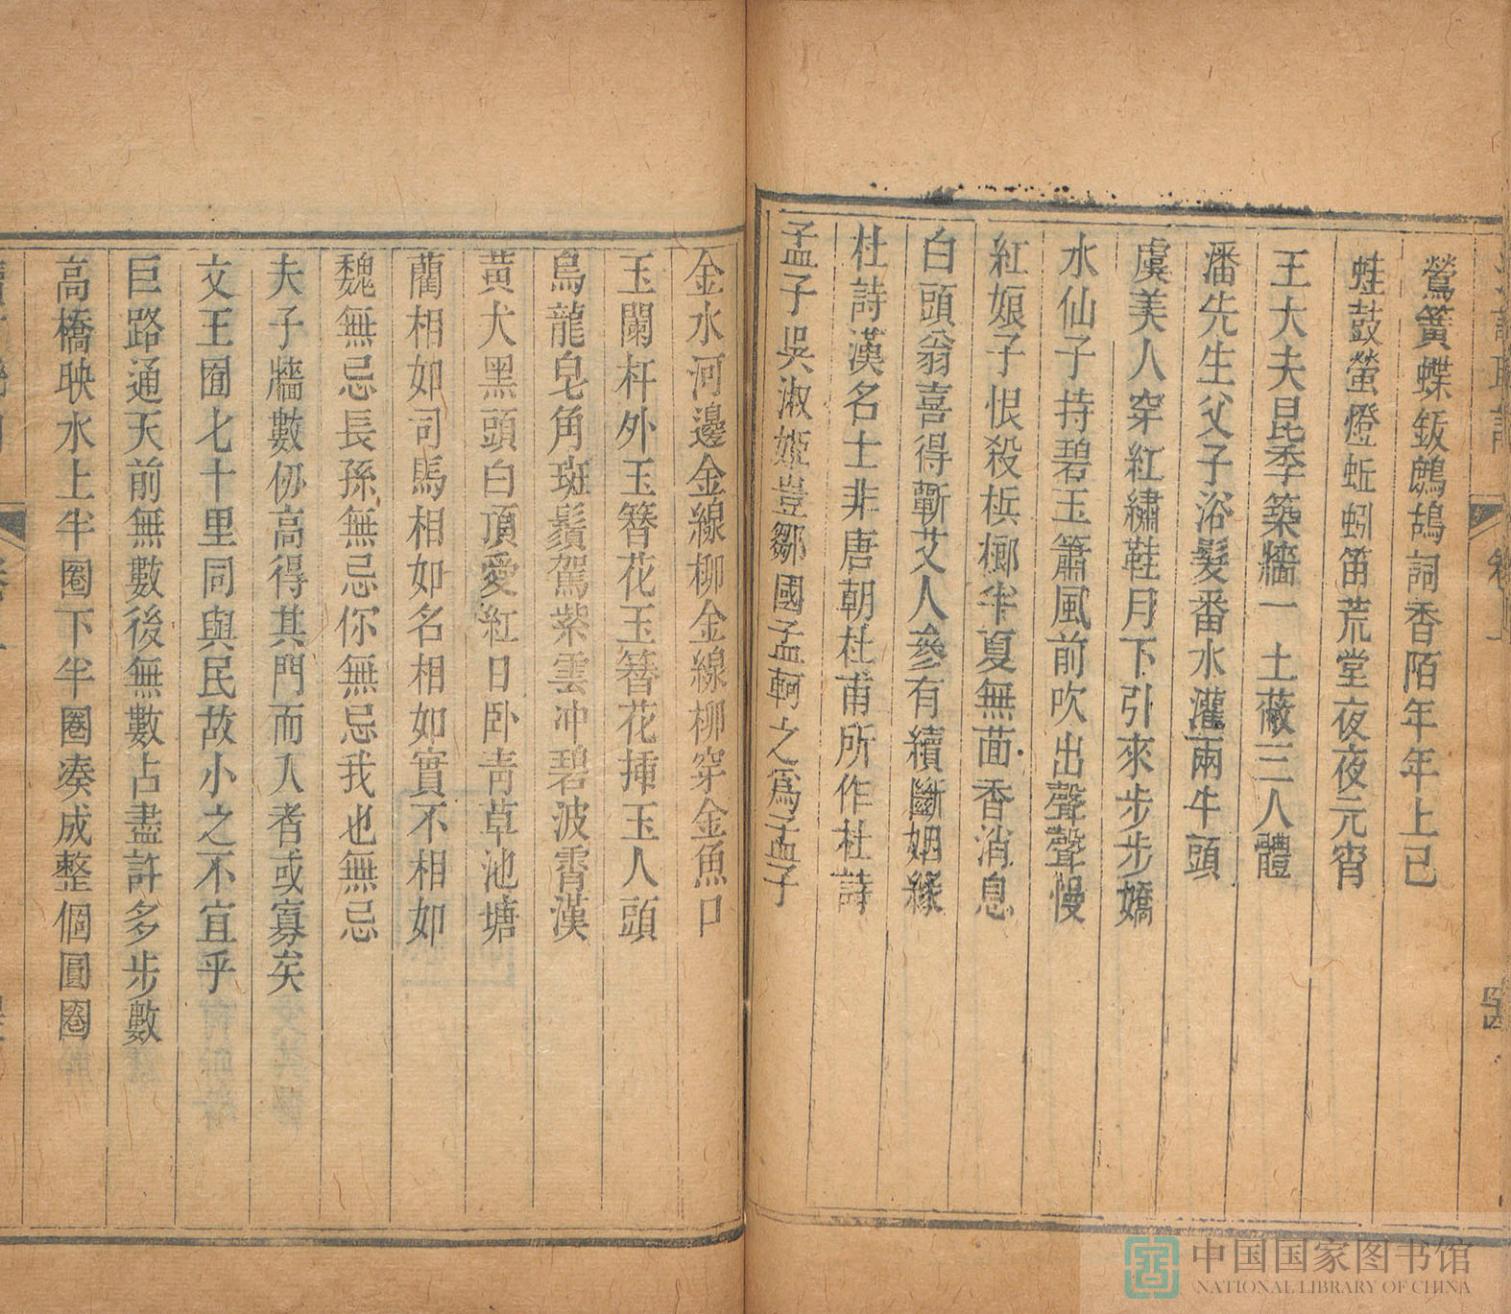 鶯簧蝶鈑鷓鴣詞香陌年年上巳
蛙鼓螢燈蚯蚓笛荒堂夜夜元宵
王大夫昆季築牆一土蔽三人體
潘先生父子浴髮番水灌兩牛頭
虞美人穿紅繡鞋月下引來步步嬌
水仙子持碧玉簫風前吹出聲聲慢
紅娘子恨殺槟榔半夏無茴香消息
白頭翁喜得蘄艾人參有續斷姻緣
杜詩漢名士非唐朝杜甫所作杜詩
孟子吳淑姬豈鄒國孟軻之爲孟子
金水河邊金線柳金線柳穿金魚口
玉闌杆外玉簪花玉簪花揷玉人頭
烏龍皂角斑鬚駕紫雲冲碧波霄漢
黃犬黑頭白頂愛紅日卧青草池塘
藺相如司馬相如名相如實不相如
魏無忌長孫無忌你無忌我也無忌
夫子牆數仞高得其門而入者或寡矣
文王囿七十里同與民故小之不宜乎
巨路通天前無數後無數占盡許多步數
高橋映水上半圈下半圈凑成整個圓圈
中国国家图书馆
NATIONAL LIBRARY OF CHINA